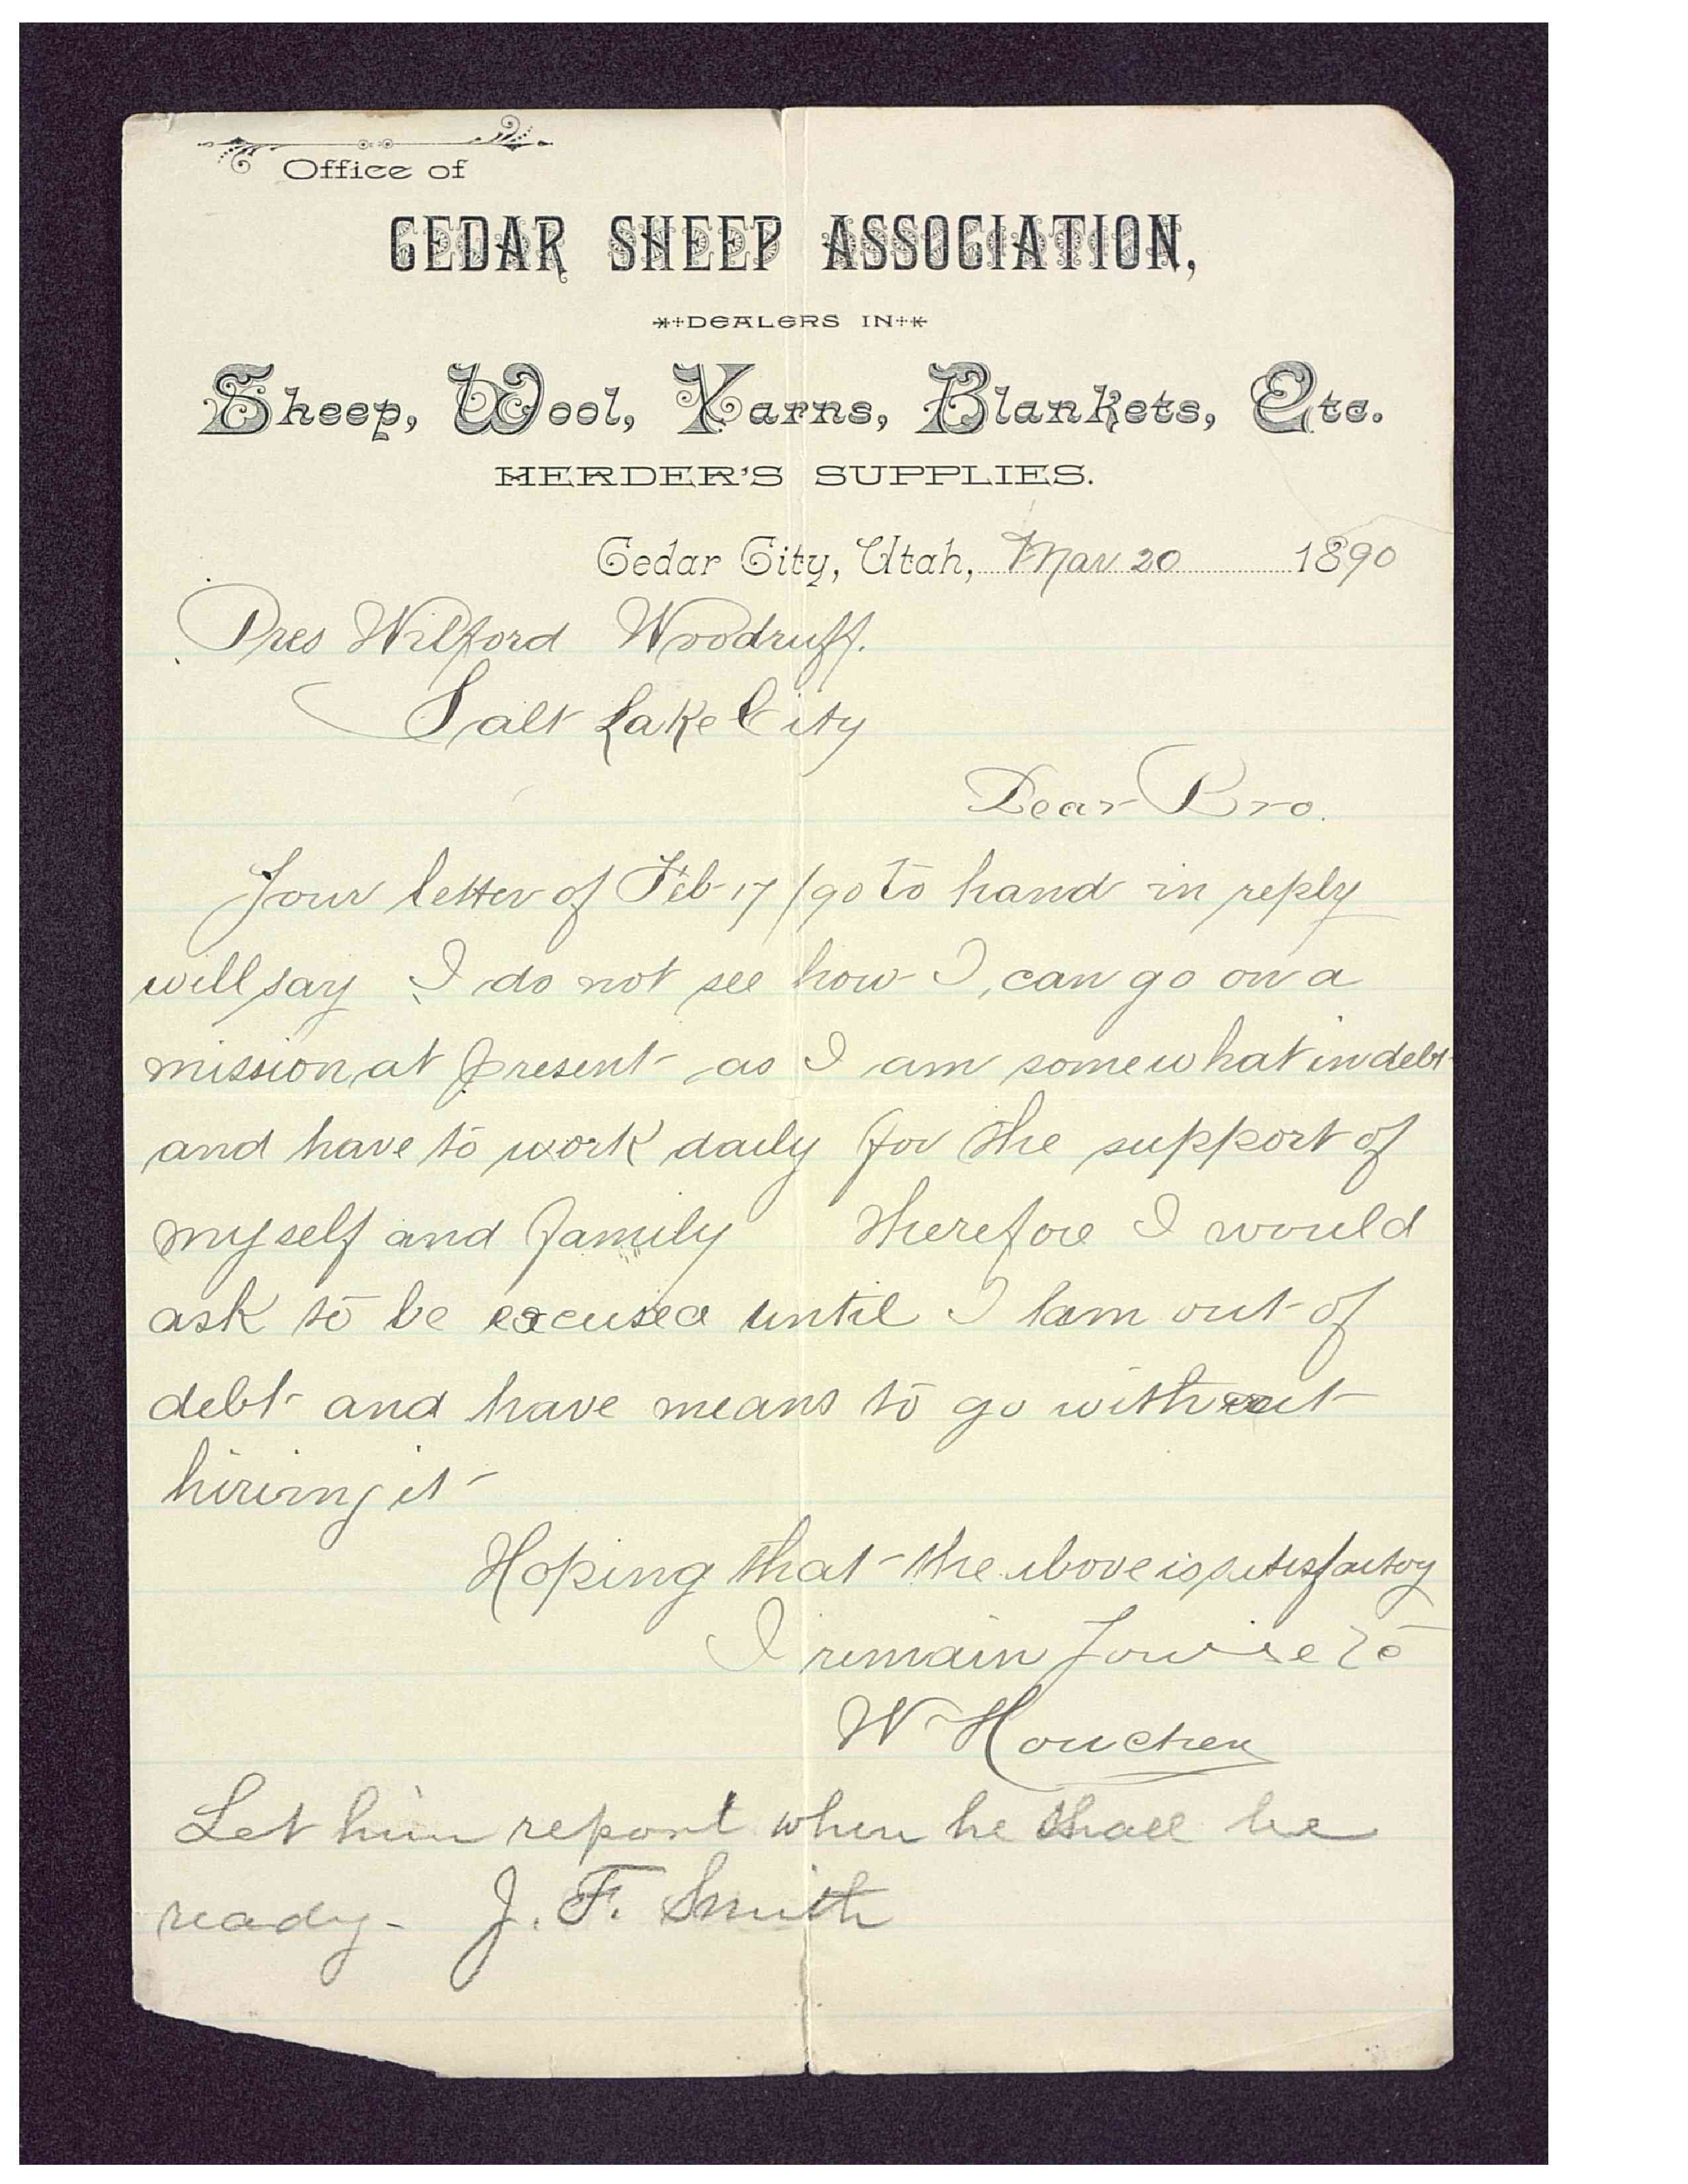 Office of
CEDAR SHEEP ASSOCIATION,
DEALERS IN
Sheep, Wool, Yarns, Blankets, Etc.
HERDER'S SUPPLIES.
Cedar City, Utah, Mar 20 1890
Pres Wilford Woodruff.
Salt Lake City
Dear Bro.
Your letter of Feb 17/90 to hand in reply
will say I do not see how I, can go on a
mission, at present as I am somewhat in debt
and have to work daily for the support of
myself and family therefore I would
ask to be excused until I am out of
debt and have means to go without
hiring it
Hoping that the above is satisfactory
I remain Yours
W Houchen
Let him report when he shall be
ready - J. F. Smith